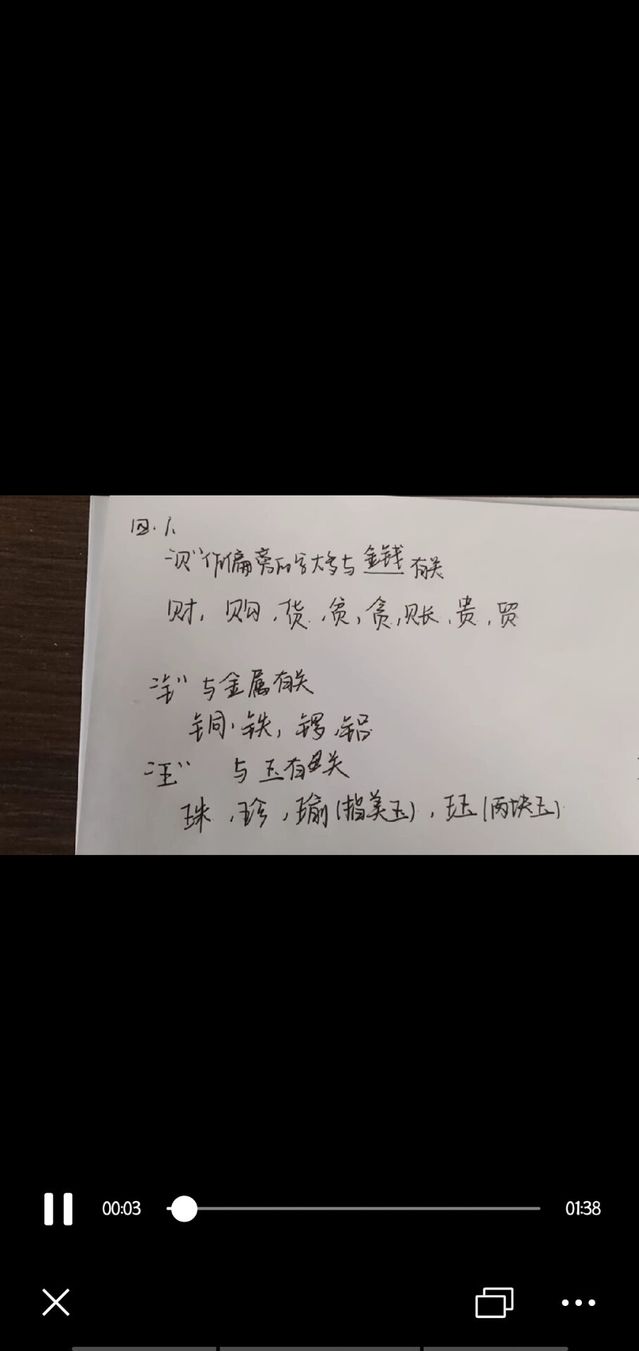 四.1.
“贝”作偏旁的字大多与金钱有关
财,购,货,贫,贪,账,贵,贸
“钅”与金属有关
铜.铁,锣.铝
“王”与玉有关
珠,珍,瑜(指美玉),珏(两块玉)
00:03
01:38